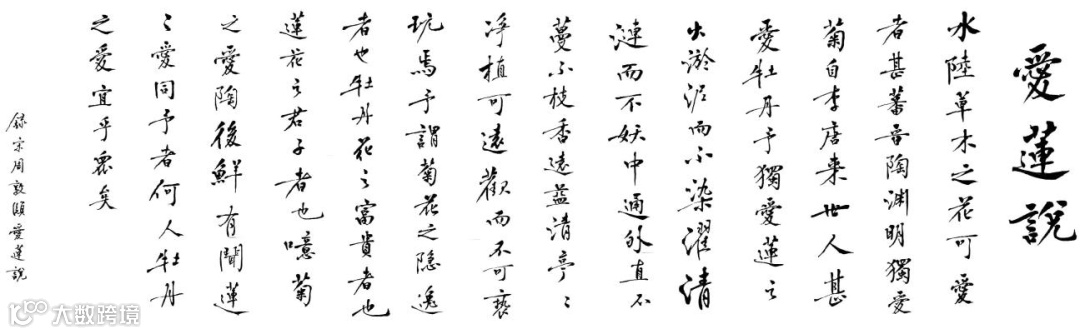 愛蓮說
水陸草木之花可愛
者甚蕃晉陶渊明獨愛
菊自李唐来世人甚
愛牡丹予獨愛蓮之
出淤泥而不染濯清
漣而不妖中通外直不
蔓不枝香遠益清亭〻
淨植可遠觀而不可褻
玩焉予謂菊花之隐逸
者也牡丹花之富貴者也
蓮花之君子者也噫菊
之愛陶後鮮有聞蓮
〻愛同予者何人牡丹
之愛宜乎衆矣
録宋周敦頤愛蓮說
大数跨境